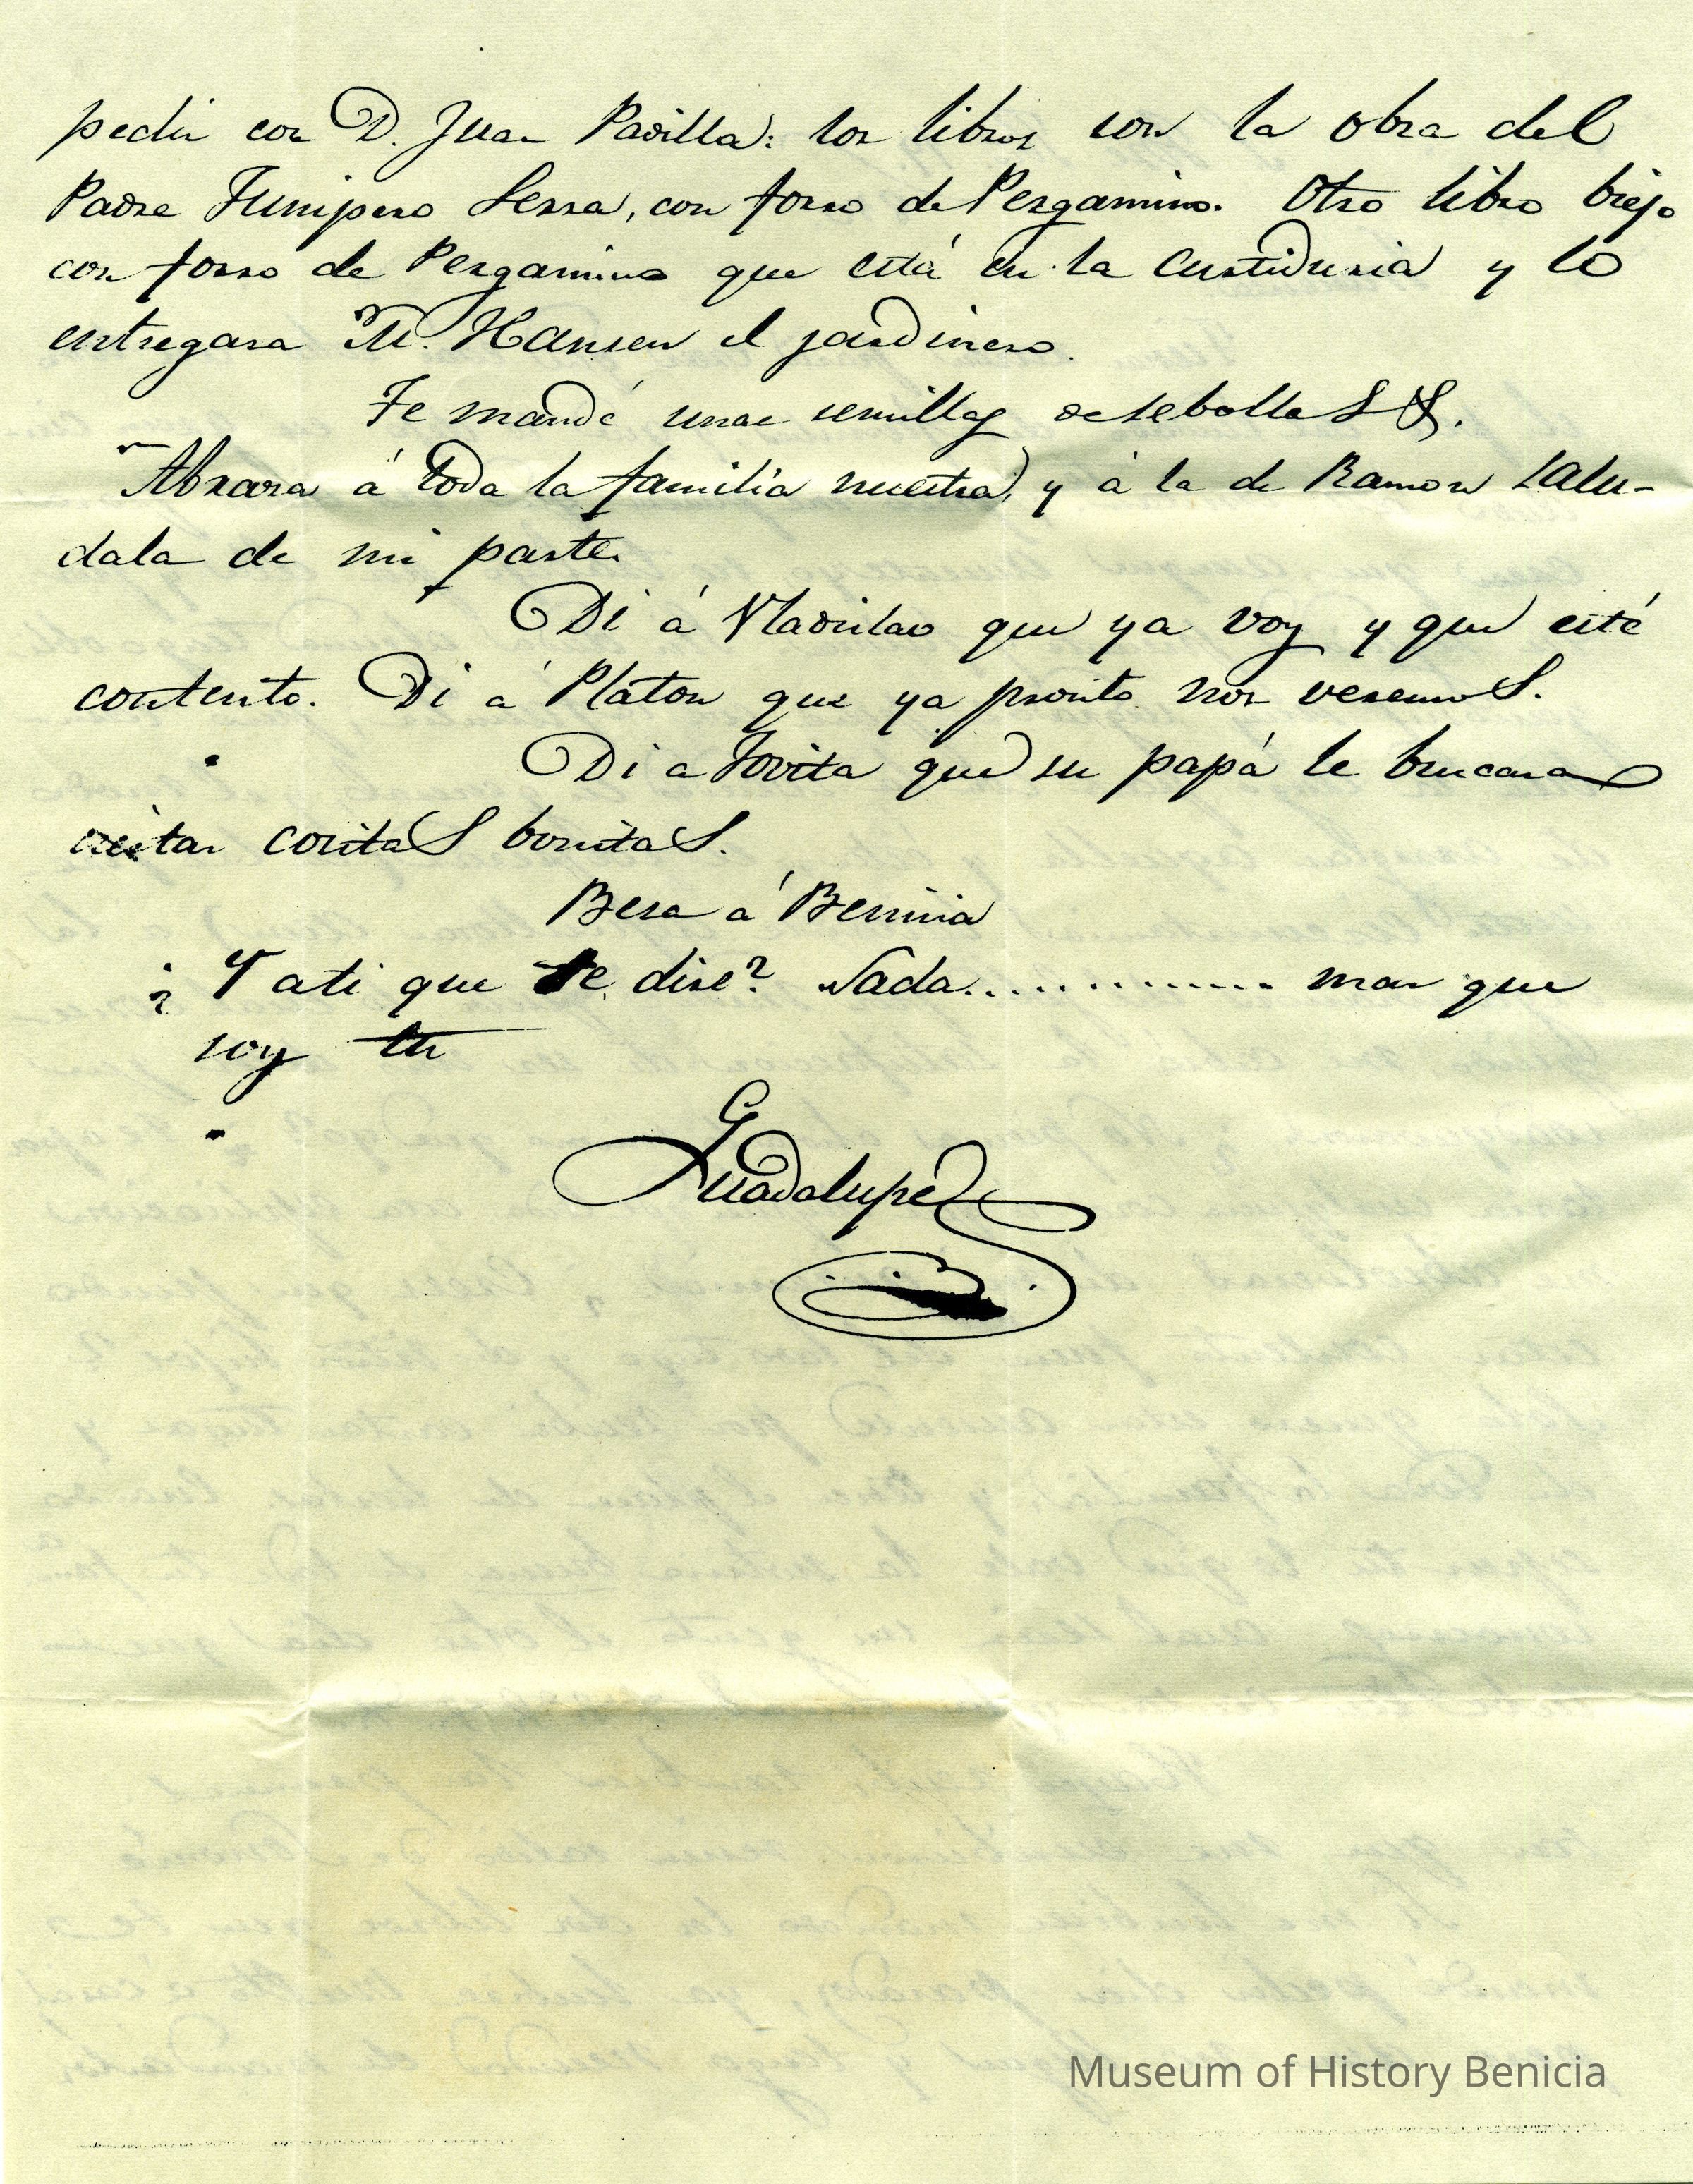 pedir con D. Juan Padilla: los libros son la obra del
Padre Junipero Serra, con forro de Pergamino. Otro libro biejo
con forro de Pergamino que está en la Custiduria y lo
entregara M. Hansen el jardinero.
Te mandé unas semillas de sebollas &.
Abrasa á toda la familia nuestra, y á la de Ramon salu-
dala de mi parte.
Di á Uladislao que ya voy y que esté
contento. Di á Platon que ya pronto nos veremos.
Di a Jovita que su papá le buscara
cositas bonitas.
Besa á Benicia
¿Y a ti que te dise? Nada.............. mas que
soy tu
Guadalupe
Museum of History Benicia